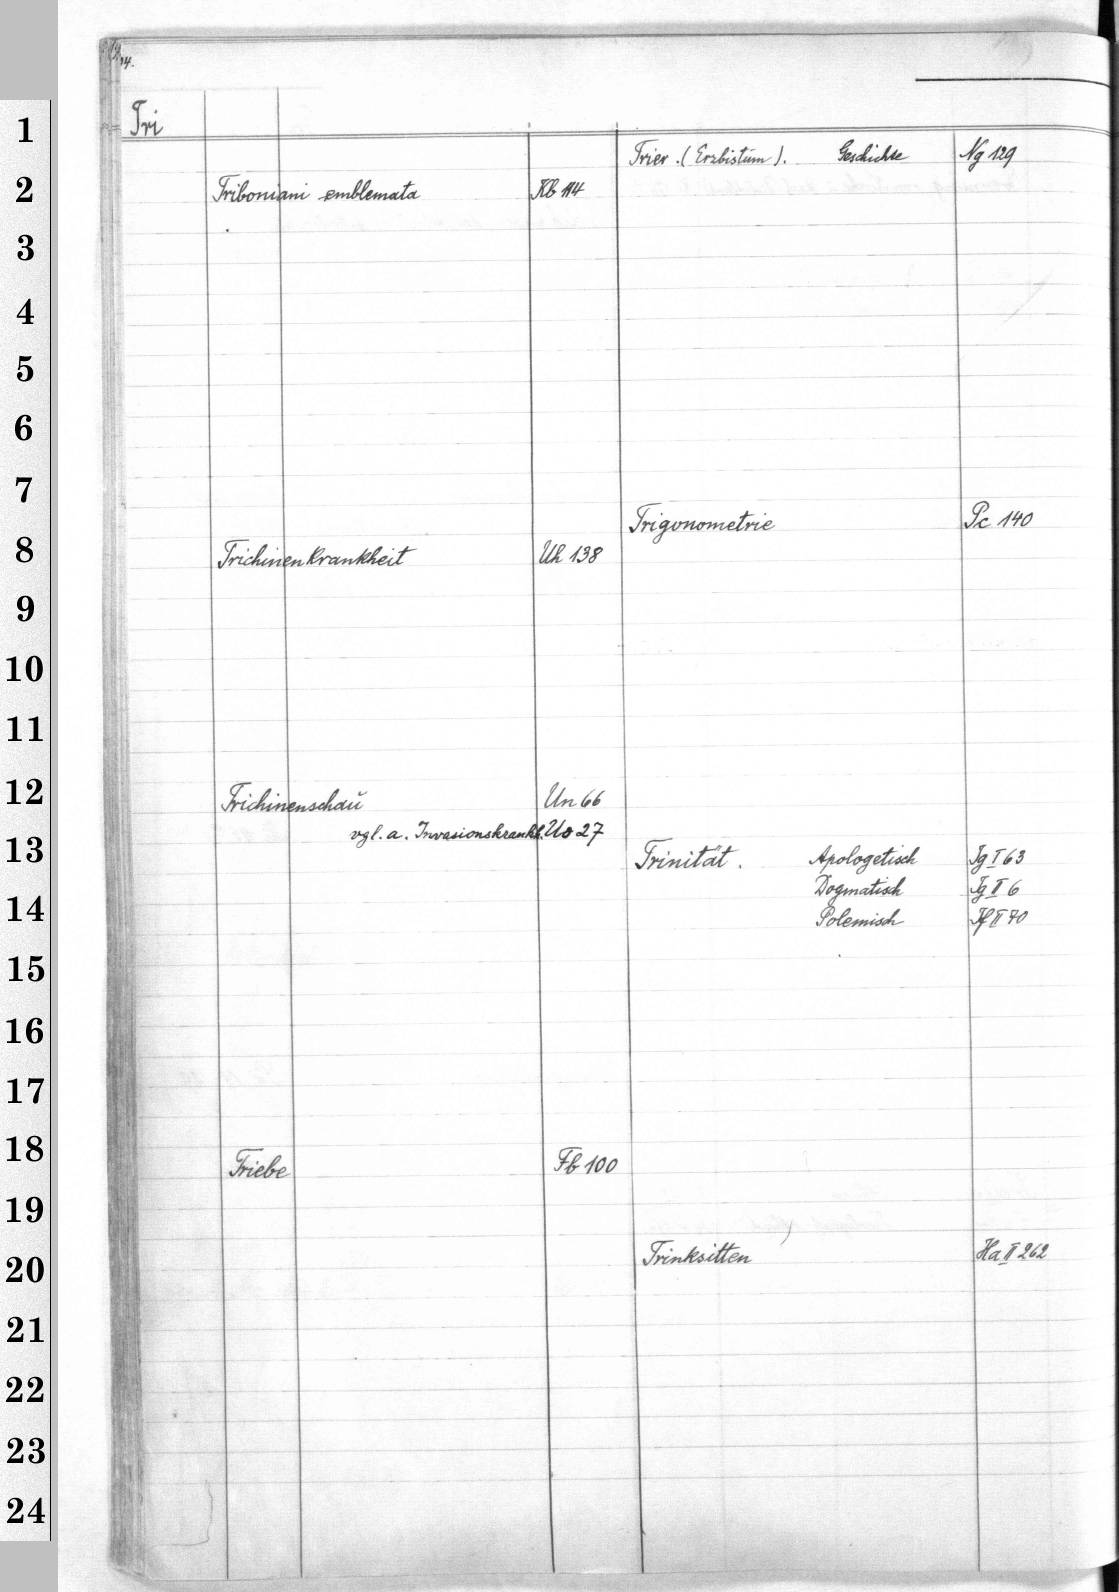 Tri
Triboniani emblemata Kb 114
Trichinenkrankheit Uh 138
Trichinenschau Un 66
vgl. a. Invasionskrankh. Uo 27
Triebe Fb 100
Trier. (Erzbistum). Geschichte Ng 129
Trigonometrie Pc 140
Trinität. Apologetisch Ig I 63
Dogmatisch Ig II 6
Polemisch If II 70
Trinksitten Ha II 262
1
2
3
4
5
6
7
8
9
10
11
12
13
14
15
16
17
18
19
20
21
22
23
24